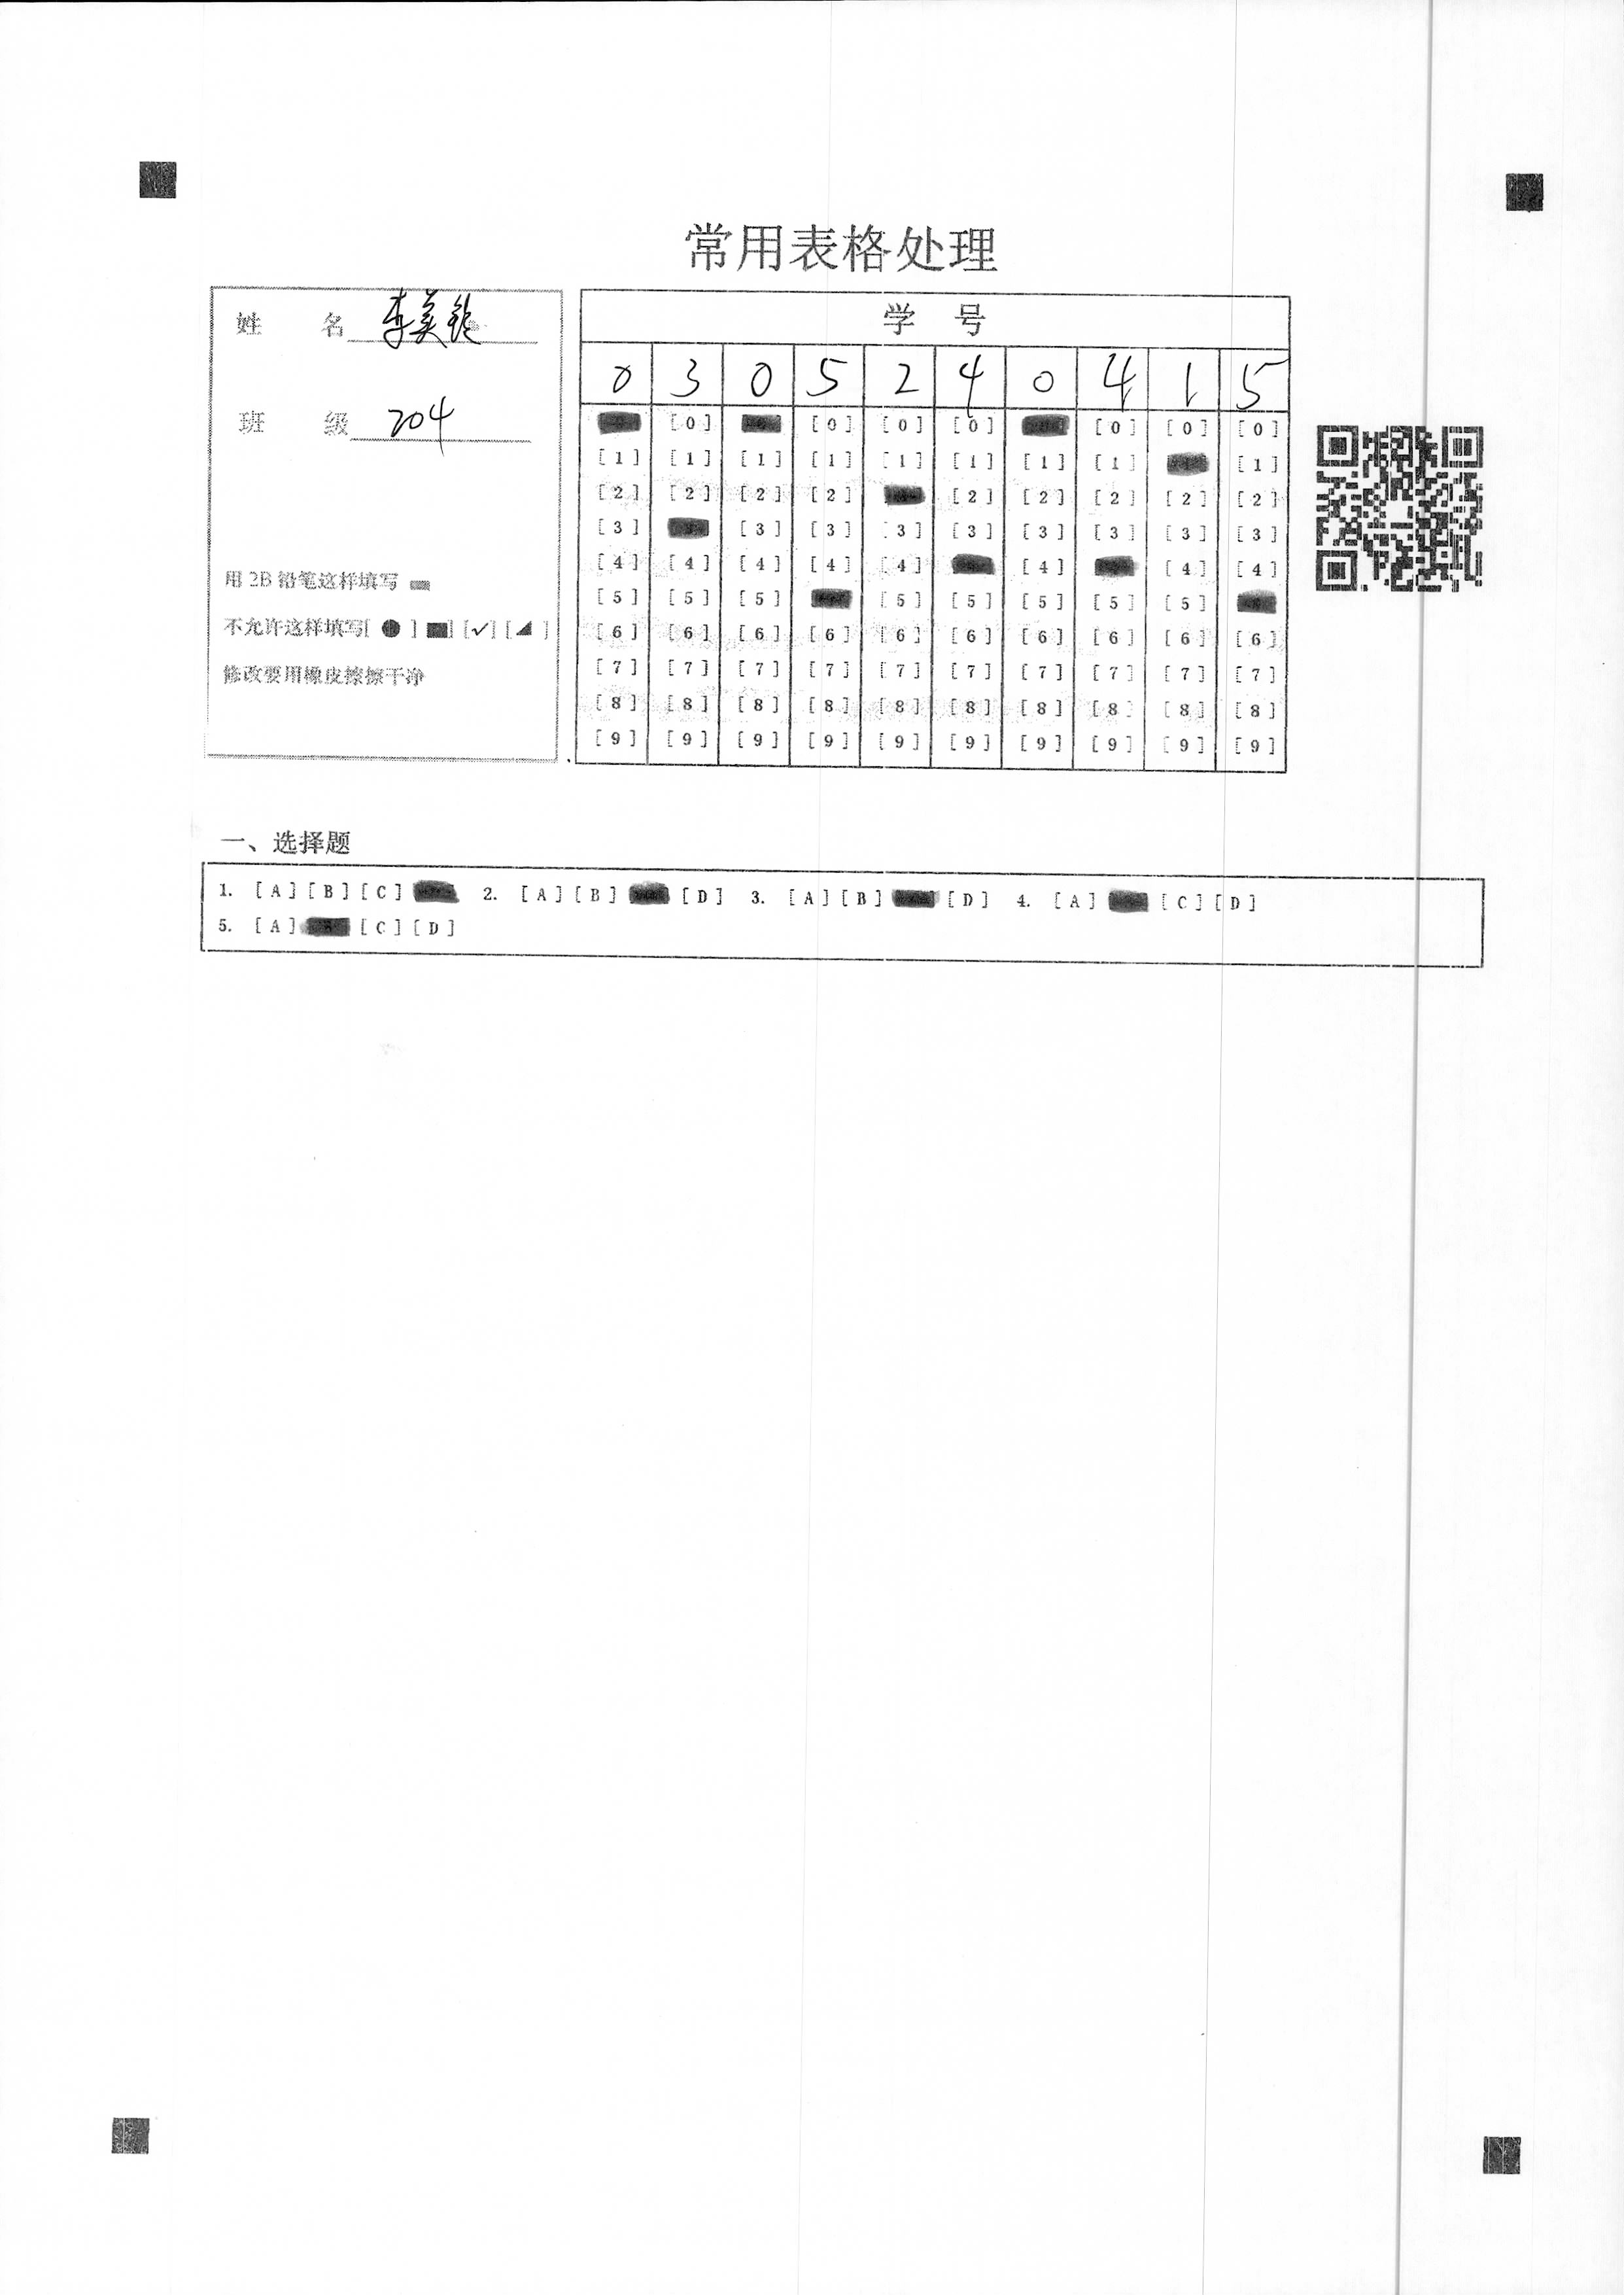 常用表格处理
姓 名 李美
班 级 204
用 2B 铅笔这样填写
不允许这样填写[ ● ] ■] [✓] [◢ ]
修改要用橡皮擦擦干净
学 号
0 3 0 5 2 4 0 4 1 5
[0] [0] [0] [0] [0] [0] [0]
[1] [1] [1] [1] [1] [1] [1] [1] [1]
[2] [2] [2] [2] [2] [2] [2] [2] [2]
[3] [3] [3] [3] [3] [3] [3] [3] [3]
[4] [4] [4] [4] [4] [4] [4] [4]
[5] [5] [5] [5] [5] [5] [5] [5]
[6] [6] [6] [6] [6] [6] [6] [6] [6] [6]
[7] [7] [7] [7] [7] [7] [7] [7] [7] [7]
[8] [8] [8] [8] [8] [8] [8] [8] [8] [8]
[9] [9] [9] [9] [9] [9] [9] [9] [9] [9]
一、选择题
1. [A] [B] [C] 2. [A] [B] [D] 3. [A] [B] [D] 4. [A] [C] [D]
5. [A] [C] [D]